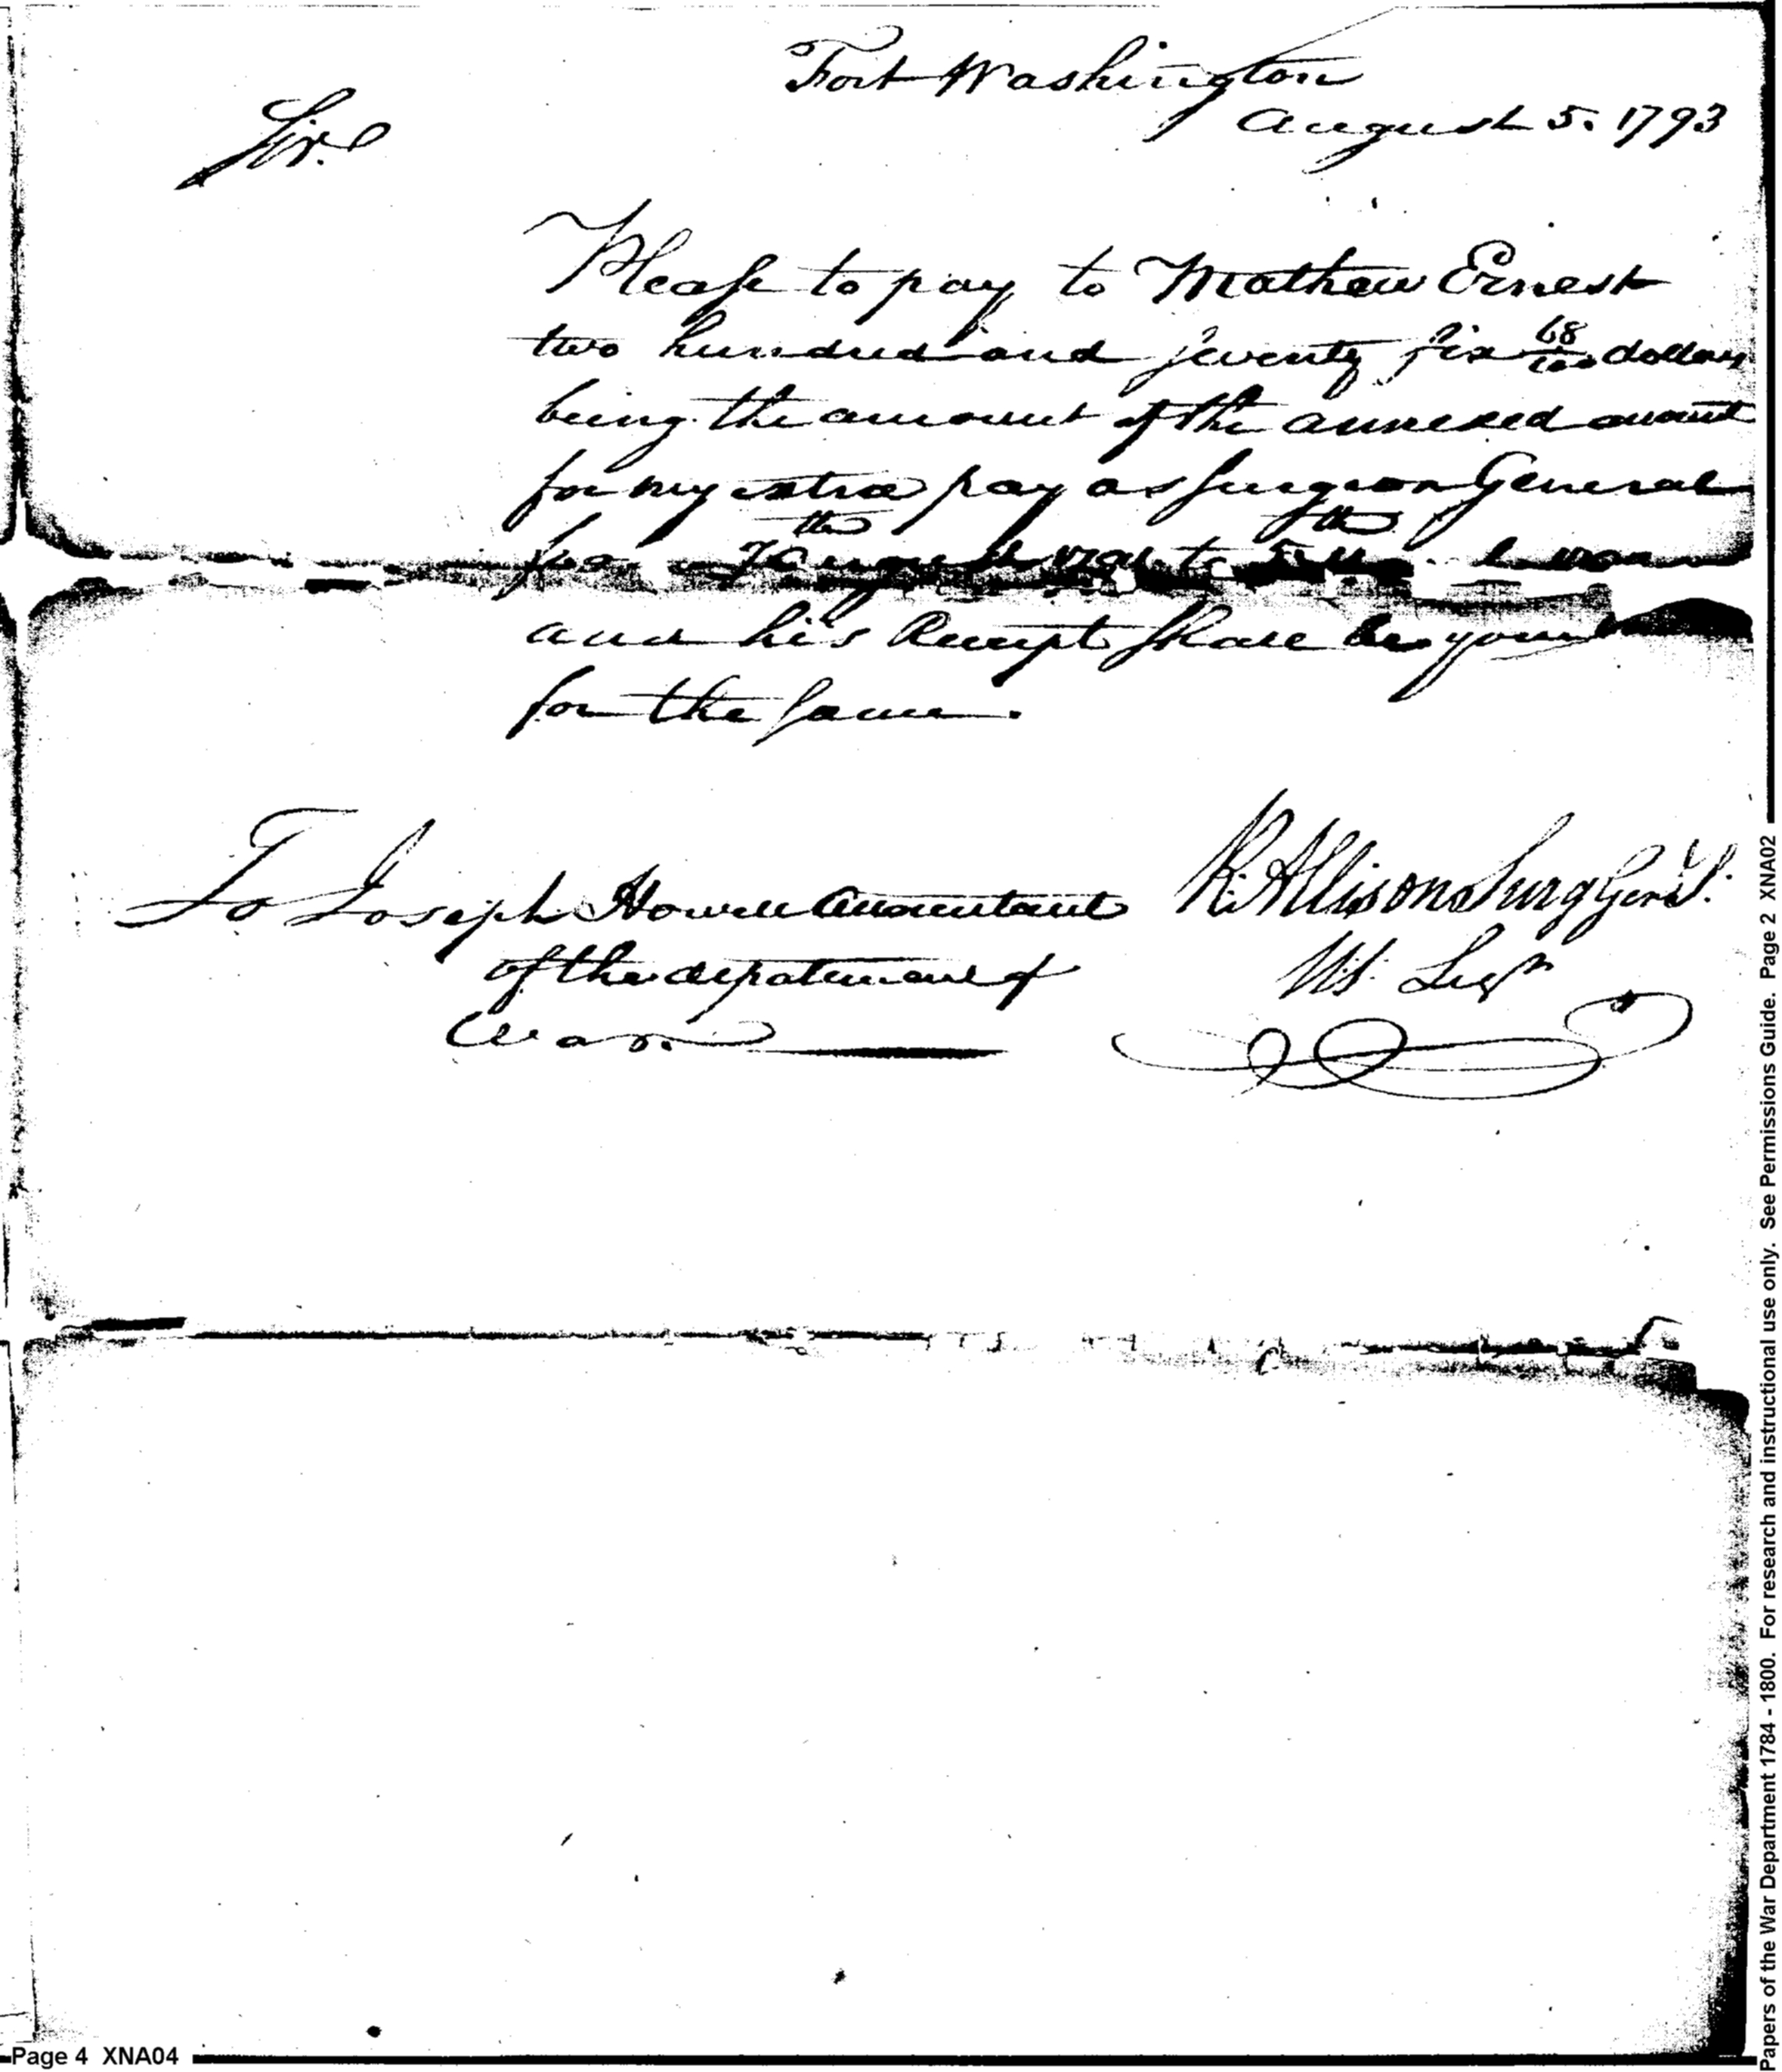 Fort Washington
August 5. 1793
Sir.
Please to pay to Mathew Ernest
two hundred and seventy six 68/100 dollars
being the amount of the annexed account
for my extra pay as Surgeon General
and his Receipt shall be your
for the same.
To Joseph Howell Accountant
of the depatement of
War.
R. Allison Surg Genl.
US. Legn
Page 4 XNA04
Papers of the War Department 1784 - 1800. For research and instructional use only. See Permissions Guide. Page 2 XNA02